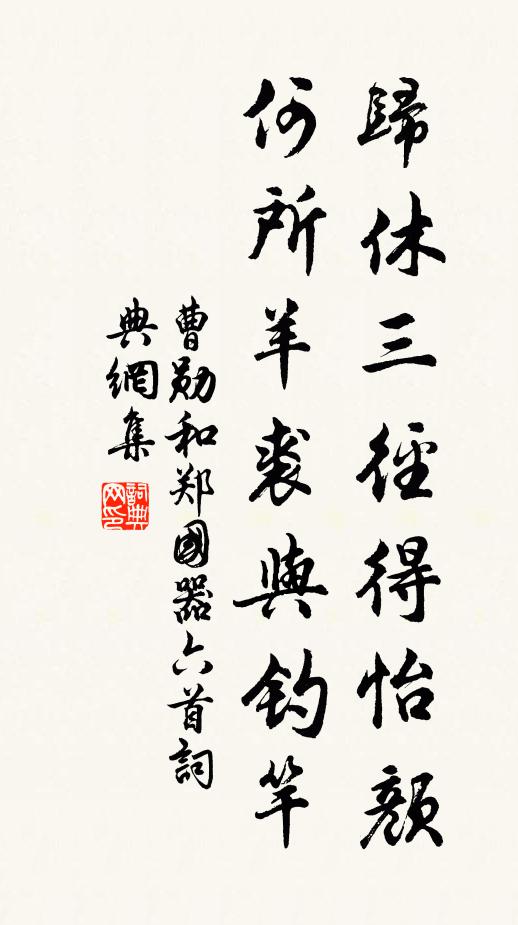 歸休三徑得怡顏
何所羊裘與釣竿
曹勛和郑國器六首詞
典網集
詞典
网印